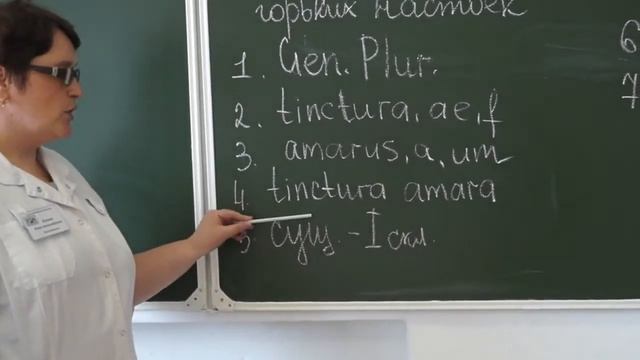 горьких настоек
1. Gen. Plur.
2. tinctura, ae, f
3. amarus, a, um
4. tinctura amara
5. сущ. - I скл.
6
7